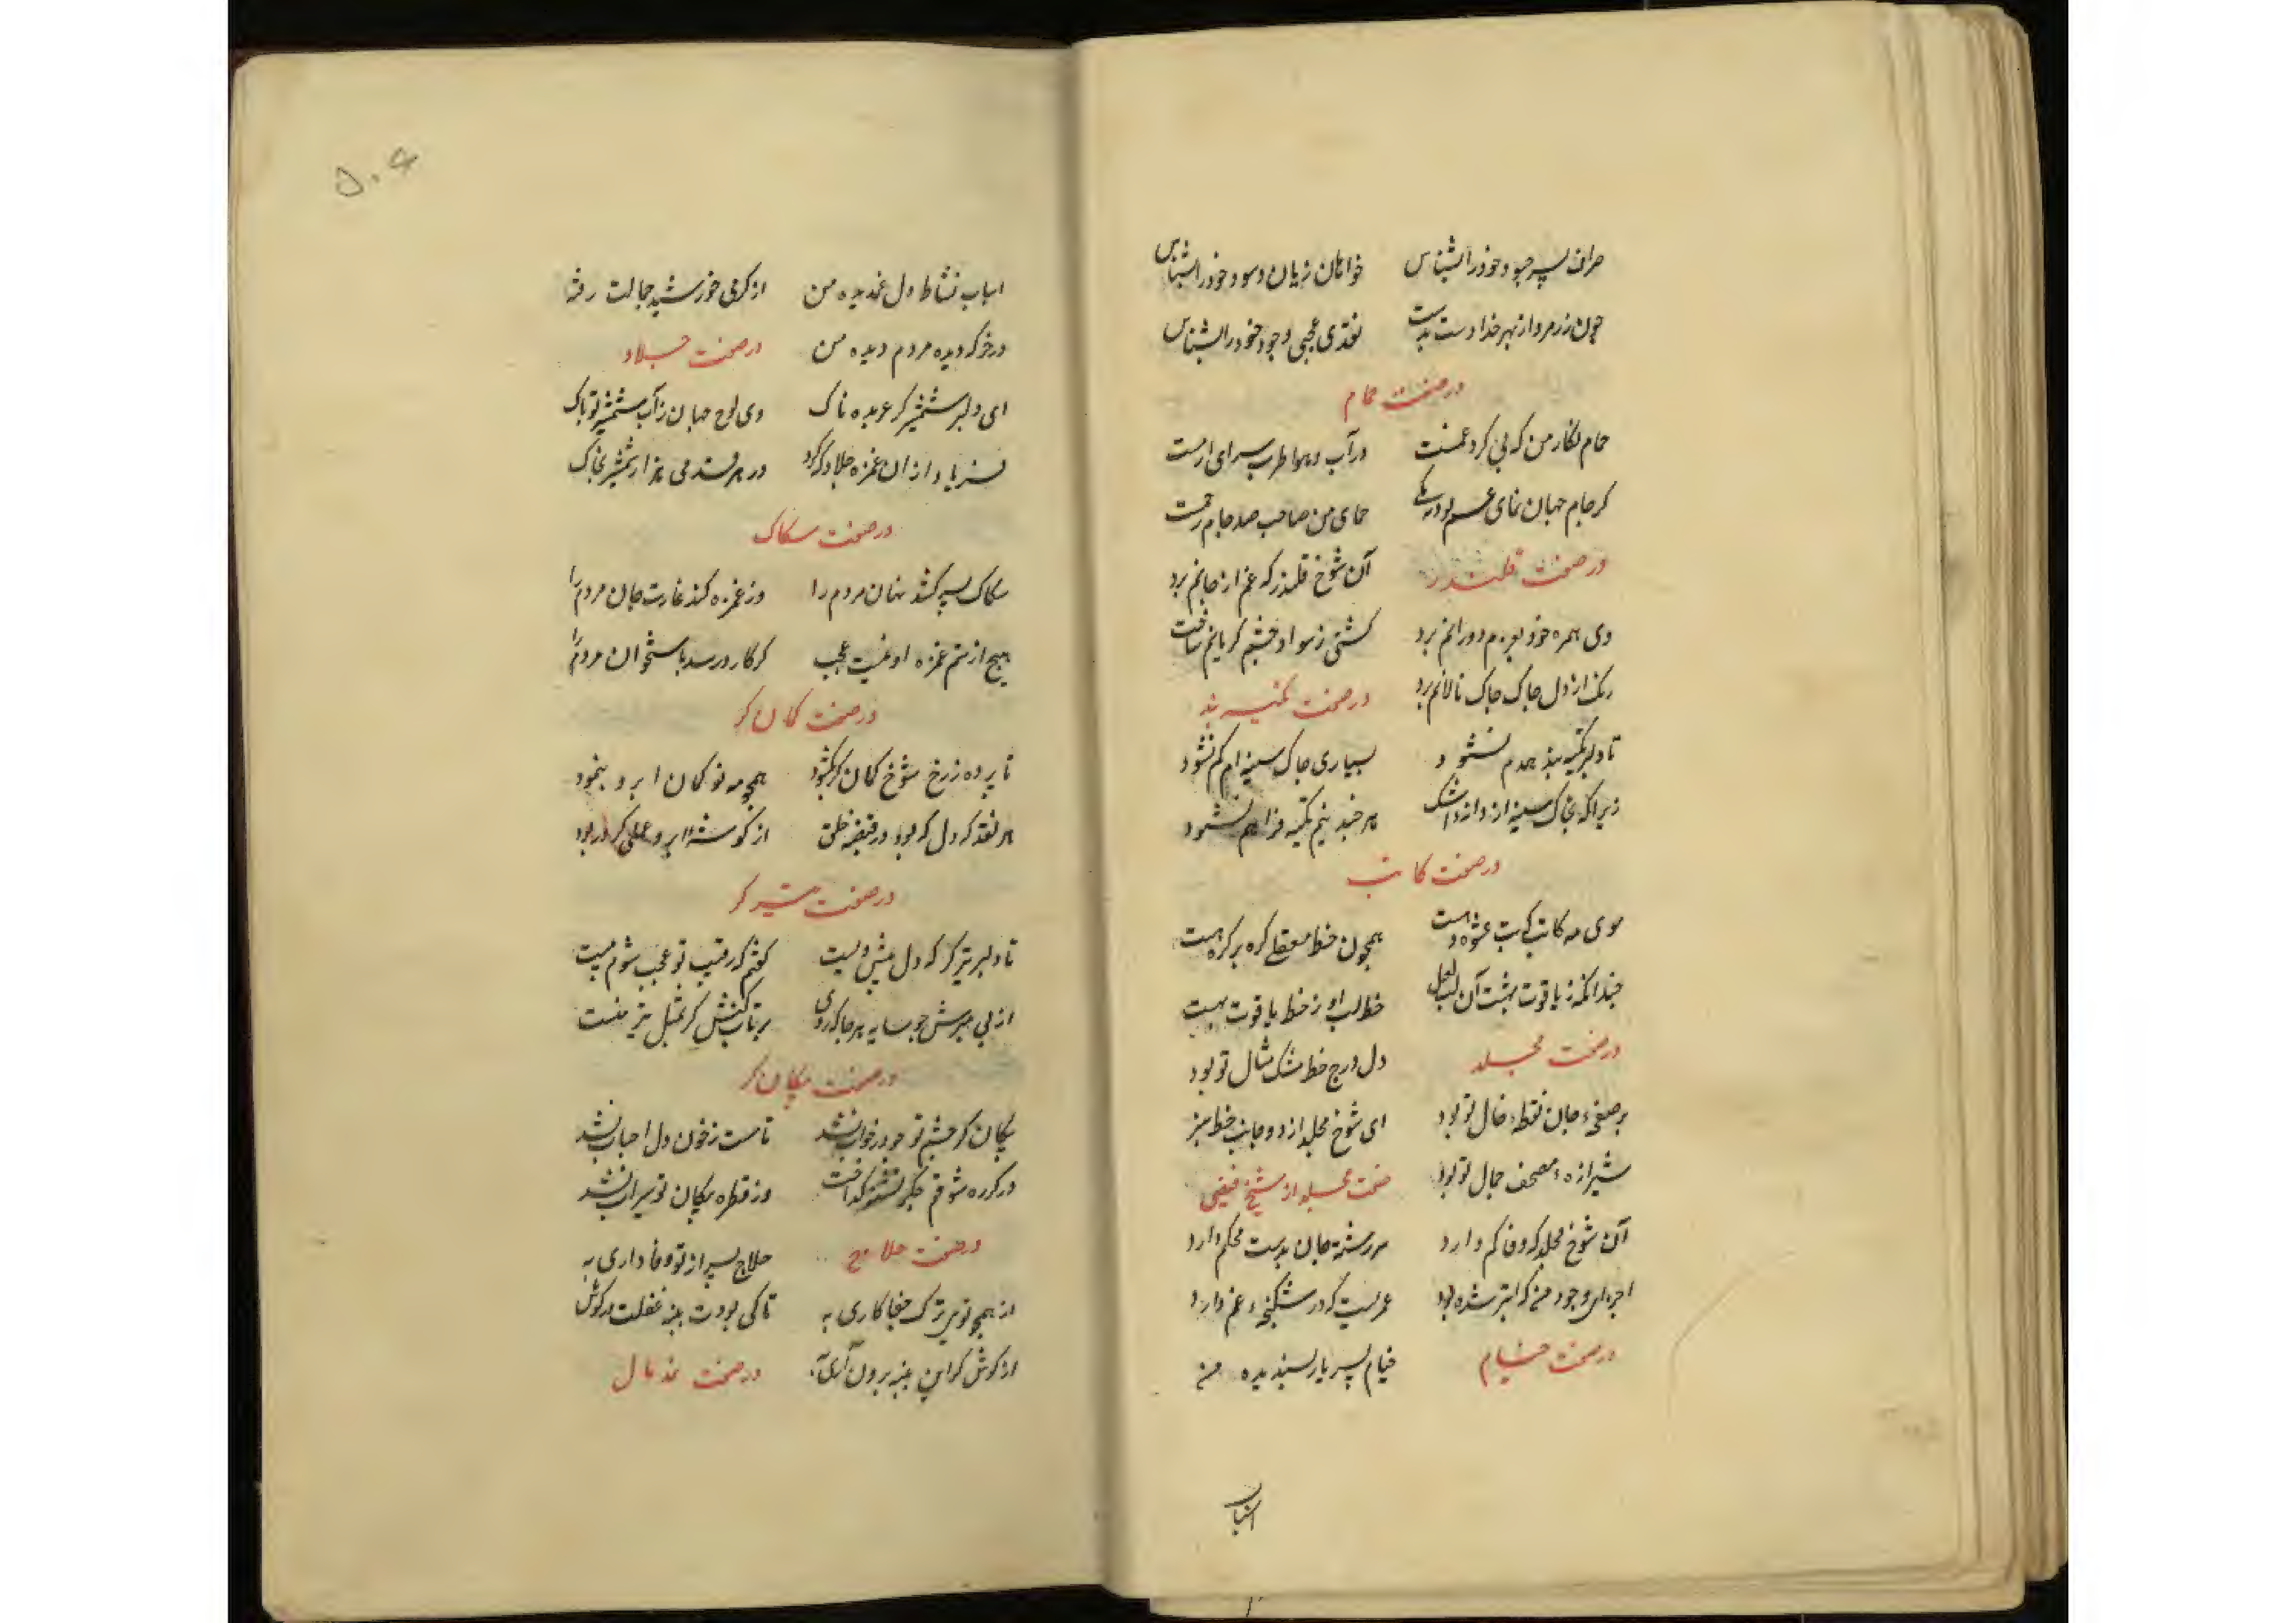 صراف پسر چو جود خود را بشناس خواهان زیان و سود خود را بشناس
چون زر مرو از بهر خدا دست بدست نقدی عجبی وجود خود را بشناس
در صفت حمام
در آب و هوا طرب سرای ارمست
کر جام جهان نمای جم بود یکی حمامی من صاحب صد جام جمست
در صفت قلندر آن شوخ قلندر که غم از جانم برد
وی همره خود بوم دورانم برد کشتی ز سواد چشم کریانم ساخت
زنک از دل چاک چاک نالانم برد در صفت تکیه بند
تا دلبر تکیه بند همدم نشود بسیاری چاک سینه ام کم نشود
زیرا که بخاک سینه از دانه اشک هر چند نیم تکیه فراهم نشود
در صفت کاتب
موی مه کاتب که بت عشوه دهست همچون خط معقلی کره بر کرهست
خط لب او ز خط یاقوت بهست
در صفت مجلد دل درج خط مشک مثال تو بود
بر صفحهٔ جان نقطهٔ خال تو بود ای شوخ مجلد از دو جانب خط سبز
شیرازهٔ مصحف جمال تو بود صفت مجلد از شیخ فیضی
آن شوخ مجلد که وفا کم دارد سررشته جان بدست محکم دارد
اجزای وجود من که ابتر شده بود عمریست که در شکنجهٔ غم دارد
در صفت خیام خیام پسر یار پسندیده من
اسباب
۵۰۴
اسباب نشاط دل غمدیده من از کرمی خورشید جمالت رفته
در خرکه دیده مردم دیده من در صفت جلاد
ای دلبر شمشیرکر عربده ناک وی لوح جهان ز آب شمشیر تو پاک
فریاد از آن غمزه جلاد که کرد در هر قدمی هزار شمشیر بخاک
در صفت سکاک
سکاک پسر کشد نهان مردم را وز غمزه کند غارت جان مردم را
هیچ از ستم غمزه او نیست عجب کر کارد رسد باستخوان مردم را
در صفت کمان کر
تا پرده ز رخ شوخ کمان کر بکشود همچو مه نو کمان ابرو بنمود
هر نقد که دل که بود در قبضه خلق از کوشهٔ ابرو عملی کرد ربود
در صفت تیر کر
تا دلبر تیر کر که دل پیش ویست
از پی سرش چو سایه هر جا که روی
در صفت پیکان کر
پیکان کر چشم تو چو در خواب نشد تا مست ز خون دل احباب نشد
در کوره شوقم جکر تشنه کداخت وز قطره پیکان تو سیراب نشد
در صفت حلاج حلاج پسر از تو وفاداری به
از همچو تویی ترک جفاکاری به تا کی بودت پنبه غفلت در کوش
از کوش کر این پنبه برون آری به در صفت ندمال